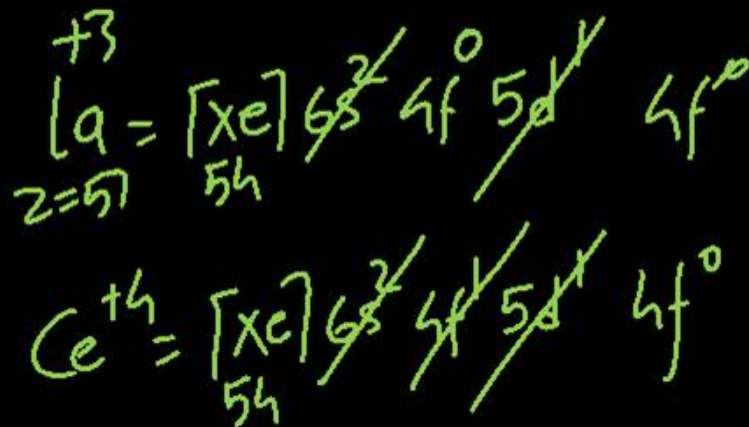 La⁺³ = [Xe] 6s² 4f⁰ 5d¹ 4f⁰
Z=57 54
Ce⁺⁴ = [Xe] 6s² 4f¹ 5d¹ 4f⁰
54